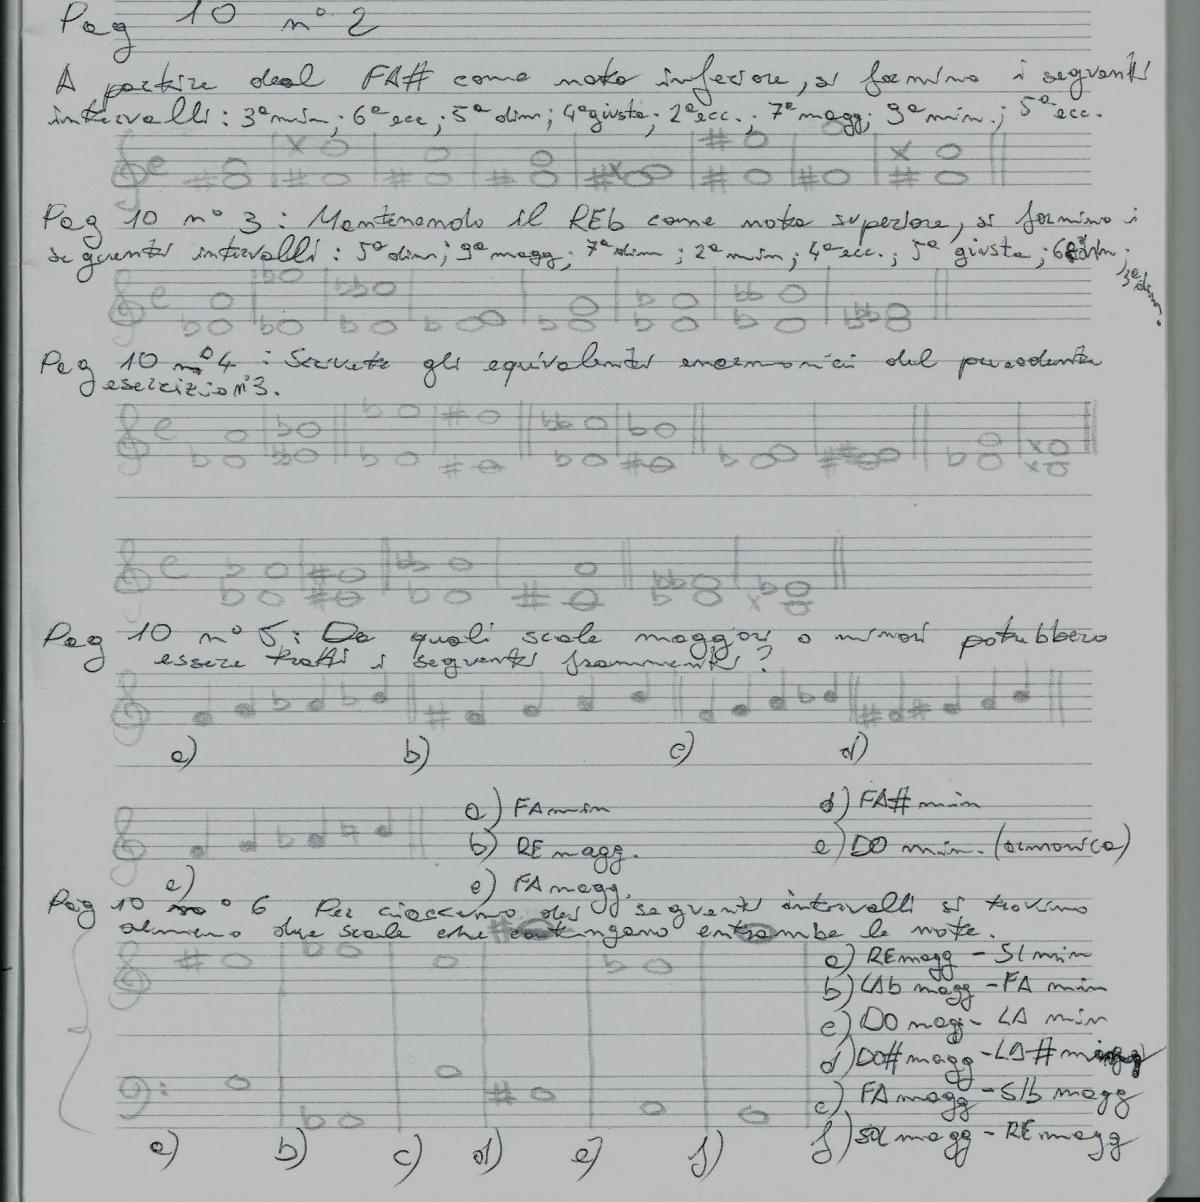 Pag 10 n° 2
A partire dal FA# come nota inferiore, si formino i seguenti
intervalli: 3ª min; 6ª ecc; 5ª dim; 4ª giusta; 2ª ecc.; 7ª magg; 9ª min.; 5ª ecc.
Pag 10 n° 3: Mantenendo il REb come nota superiore, si formino i
seguenti intervalli: 5ª dim; 9ª magg; 7ª dim; 2ª min; 4ª ecc.; 5ª giusta;
3ª dim.
Pag 10 n° 4: Scrivete gli equivalenti enarmonici del precedente
esercizio n°3.
Pag 10 n° 5: Da quali scale maggiori o minori potrebbero
essere tratti i seguenti frammenti?
a) b) c) d)
a) FA min d) FA# min
b) RE magg. e) DO min. (armonica)
e) c) FA magg.
Pag 10 n° 6 Per ciascuno dei seguenti intervalli si trovino
almeno due scale che contengano entrambe le note.
a) RE magg - SI min
b) LAb magg - FA min
c) DO magg - LA min
d) DO# magg - LA#
e) FA magg - SIb magg
f) SOL magg - RE magg
a) b) c) d) e) f)